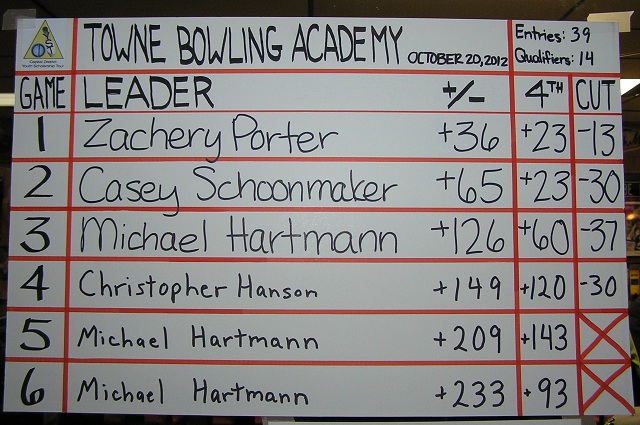 Capital District
Youth Scholarship Tour
TOWNE BOWLING ACADEMY OCTOBER 20, 2012
Entries: 39
Qualifiers: 14
GAME LEADER +/- 4TH CUT
1 Zachery Porter +36 +23 -13
2 Casey Schoonmaker +65 +23 -30
3 Michael Hartmann +126 +60 -37
4 Christopher Hanson +149 +120 -30
5 Michael Hartmann +209 +143
6 Michael Hartmann +233 +93